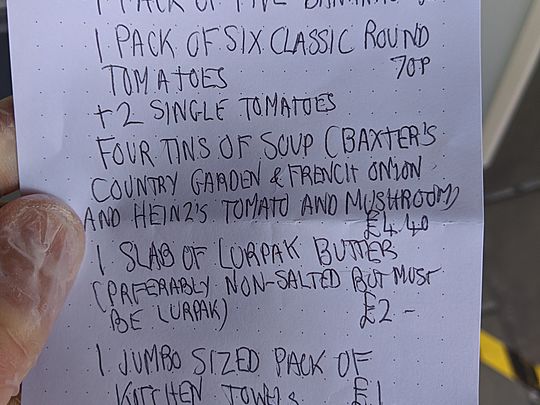 1 PACK OF FIVE BANANAS
1 PACK OF SIX CLASSIC ROUND
TOMATOES 70P
+ 2 SINGLE TOMATOES
FOUR TINS OF SOUP (BAXTER'S
COUNTRY GARDEN & FRENCH ONION
AND HEINZ'S TOMATO AND MUSHROOM)
£4.40
1 SLAB OF LURPAK BUTTER
(PRFERABLY NON-SALTED BUT MUST
BE LURPAK) £2 -
1 JUMBO SIZED PACK OF
KITCHEN TOWELS £1